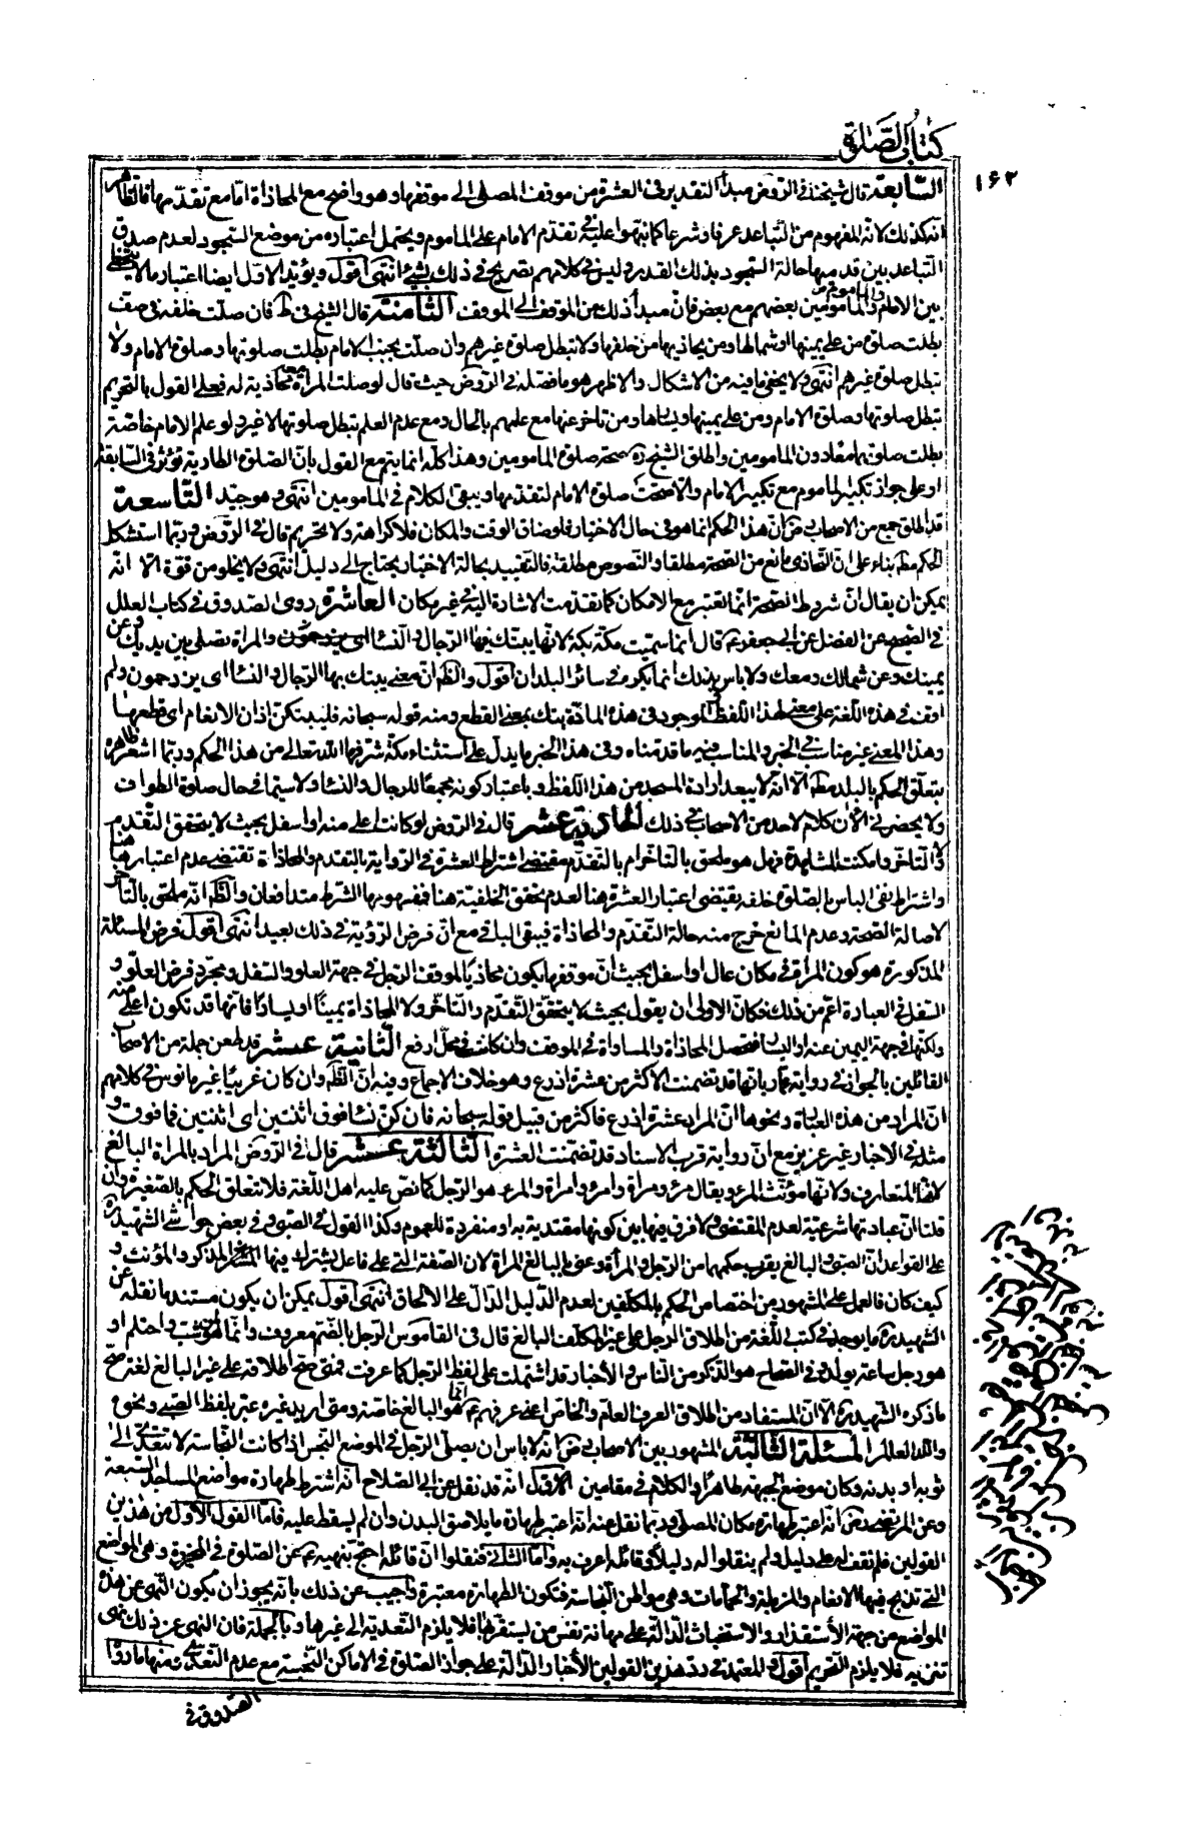 كتاب الصلاة
١٦٢
السابعة قال شيخنا في الروض مبدأ التقدير في العشرة من موقف المصلي الى موقفها وهو واضح مع المحاذاة اما مع تقدمها فالظاهر
انه كذلك لانه المفهوم من التباعد عرفا وشرعا كما نبهوا عليه في تقدم الامام على المأموم ويحتمل اعتباره من موضع السجود لعدم صدق
التباعد بين قدميها حالة السجود بذلك القدر وليس في كلامهم تصريح في ذلك بشئ انتهى اقول ويؤيد الاول ايضا اعتبار ما لا يتخطى
بين الامام والمأمومين بعضهم مع بعض فان مبدأ ذلك من الموقف الى الموقف الثامنة قال الشيخ في ط فان صلت خلفه في صف
بطلت صلوة من على يمينها وشمالها ومن يحاذيها من خلفها ولا تبطل صلوة غيرهم وان صلت بجنب الامام بطلت صلوتها وصلوة الامام ولا
تبطل صلوة غيرهم انتهى ولا يخفى ما فيه من الاشكال والاظهر هو ما فصله في الروض حيث قال لو صلت المرأة محاذية له فعلى القول بالتحريم
تبطل صلوتها وصلوة الامام ومن على يمينها ويسارها ومن تأخر عنها مع علمهم بالحال ومع عدم العلم تبطل صلوتها لا غير ولو علم الامام خاصة
بطلت صلوتهما دون المأمومين واطلق الشيخ ره صحة صلوة المأمومين وهذا كله انما يتم مع القول بان الصلوة الطارية تؤثر في السابقة
او على جواز تكبير المأموم مع تكبير الامام والا صحت صلوة الامام لتقدمها ويبقى الكلام في المأمومين انتهى وهو جيد التاسعة
قد اطلق جمع من الاصحاب رض ان هذا الحكم انما هو في حال الاختيار فلو ضاق الوقت والمكان فلا كراهة ولا تحريم قال في الروض وربما استشكل
الحكم مط بناء على ان التحاذي مانع من الصحة مطلقا والنصوص مطلقة فالتقييد بحالة الاختيار يحتاج الى دليل انتهى ولا يخلو من قوة الا انه
يمكن ان يقال ان شروط الصحة انما تعتبر مع الامكان كما تقدمت الاشارة اليه في غير مكان العاشرة روى الصدوق في كتاب العلل
في الصحيح عن الفضل عن ابي جعفر ع قال انما سميت مكة بكة لانها يبتك فيها الرجال والنساء اي يزدحمون والمرأة تصلي بين يديك وعن
يمينك وعن شمالك ومعك ولا باس بذلك انما يكره في سائر البلدان اقول والظ ان معنى يبتك بها الرجال والنساء اي يزدحمون ولم
اقف في هذه اللغة على معنى لهذا اللفظ والموجود في هذه المادة بتك بمعنى القطع ومنه قوله سبحانه فليبتكن اذان الانعام اي قطعها
وهذا المعنى غير مناسب في الخبر والمناسب فيه ما قدمناه وفي هذا الخبر ما يدل على استثناء مكة شرفها الله تعالى من هذا الحكم وربما اشعر ظاهره
بتعلق الحكم بالبلد مط الا انه لا يبعد ارادة المسجد من هذا اللفظ وباعتبار كونه مجمعا للرجال والنساء ولا سيما في حال صلوة الطواف
ولا يحضرني الآن كلام لاحد من الاصحاب في ذلك الحادية عشر قال في الروض لو كانت اعلى منه او اسفل بحيث لا يتحقق التقدم
والتأخر وامكنت المشاهدة فهل هو ملحق بالتأخر ام بالتقدم مقتضى اشتراط العشرة في الرواية بالتقدم والمحاذاة تقتضي عدم اعتبارها هنا
واشتراط نفي الباس بالصلوة خلفه يقتضي اعتبار العشرة هنا لعدم تحقق الخلفية هنا فمفهوم بها الشرط متدافعان والظ انه ملحق بالتأخر
لاصالة الصحة وعدم المانع خرج منه حالة التقدم والمحاذاة فيبقى الباقي مع ان فرض الرؤية في ذلك بعيد انتهى اقول فرض المسئلة
المذكورة هو كون المرأة في مكان عال او اسفل بحيث ان موقفها يكون محاذيا لموقف الرجل في جهة العلو والتسفل ومجرد فرض العلو و
السفل في العبارة اعم من ذلك فكان الاولى ان يقول بحيث لا يتحقق التقدم والتأخر ولا المحاذاة يمينا او يسارا فانها قد تكون اعلى منه
ولكنها في جهة اليمين عنه او اليسار فتحصل المحاذاة والمساواة في الموقف وان كانت في محل ارفع الثانية عشر قد طعن جملة من الاصحاب
القائلين بالجواز في رواية عمار بانها قد تضمنت الاكثر من عشرة اذرع وهو خلاف الاجماع وفيه ان الظ وان كان غريبا غير مانوس في كلامهم
ان المراد من هذه العبارة ونحوها ان المراد عشرة اذرع فاكثر من قبيل قوله سبحانه فان كن نساء فوق اثنتين اي اثنتين فما فوق و
مثله في الاخبار غير عزيز مع ان رواية قرب الاسناد قد تضمنت العشرة الثالثة عشر قال في الروض المراد بالمرأة البالغ
لانها المتعارف ولانها مؤنث المرء ويقال مرء ومرأة وامرء وامرأة والمرء هو الرجل كما نص عليه اهل اللغة فلا يتعلق الحكم بالصغيرة وان
قلنا ان عبادتها شرعية لعدم المقتضي ولا فرق فيها بين كونها مقتدية به او منفردة للعموم وكذا القول في الصبي وفي بعض حواشي الشهيد ره
على القواعد ان الصبي والبالغ يقرب حكمهما من الرجل والمرأة وعنى بالبالغ المرأة لان الصفة التي على فاعل يشترك فيها المذكر والمؤنث و
كيف كان فالعمل على المشهور من اختصاص الحكم بالمكلفين لعدم الدليل الدال على الالحاق انتهى اقول يمكن ان يكون مستند ما نقله عن
الشهيد ره ما يوجد في كتب اللغة من اطلاق الرجل على غير المكلف البالغ قال في القاموس الرجل بالضم معروف وانما هو اذا شب واحتلم او
هو رجل ساعة يولد وفي الصحاح هو الذكر من الناس والأخبار قد اشتملت على لفظ الرجل كما عرفت فمتى صح اطلاقه على غير البالغ لغة صح
ما ذكره الشهيد ره الا ان المستفاد من اطلاق العرف العام والخاص اعني عرفهم ع انما هو البالغ خاصة ومتى اريد غيره عبر بلفظ الصبي ونحوه
والله العالم المسئلة الثالثة المشهور بين الاصحاب رض انه لا باس ان يصلي الرجل في الموضع النجس اذا كانت النجاسة لا تتعدى الى
ثوبه او بدنه وكان موضع الجبهة طاهرا والكلام في مقامين الاول انه قد نقل عن ابي الصلاح انه اشترط طهارة مواضع المساجد السبعة
وعن المرتضى رض انه اعتبر طهارة مكان المصلي وربما نقل عنه انه اعتبر طهارة ما يلاصق البدن وان لم يسقط عليه فاما القول الاول من هذين
القولين فلم نقف له على دليل ولم ينقلوا له دليلا ولا قائله اعرب به واما الثاني فنقلوا ان قائله احتج بنهيه ع عن الصلوة في المجزرة وهي المواضع
التي تذبح فيها الانعام والمزبلة والحمامات وهي مواطن النجاسة فتكون الطهارة معتبرة واجيب عن ذلك بانه يجوز ان يكون النهي عن هذه
المواضع من جهة الأستقذار والاستخباث الدالة على مهانة نفس من يستقر بها فلا يلزم التعدية الى غيرها وبالجملة فان النهي عن ذلك نهي
تنزيه فلا يلزم التحريم اقول والمعتمد في رد هذين القولين الأخبار الدالة على جواز الصلوة في الاماكن النجسة مع عدم التعدي منها ما رواه
الصدوق في